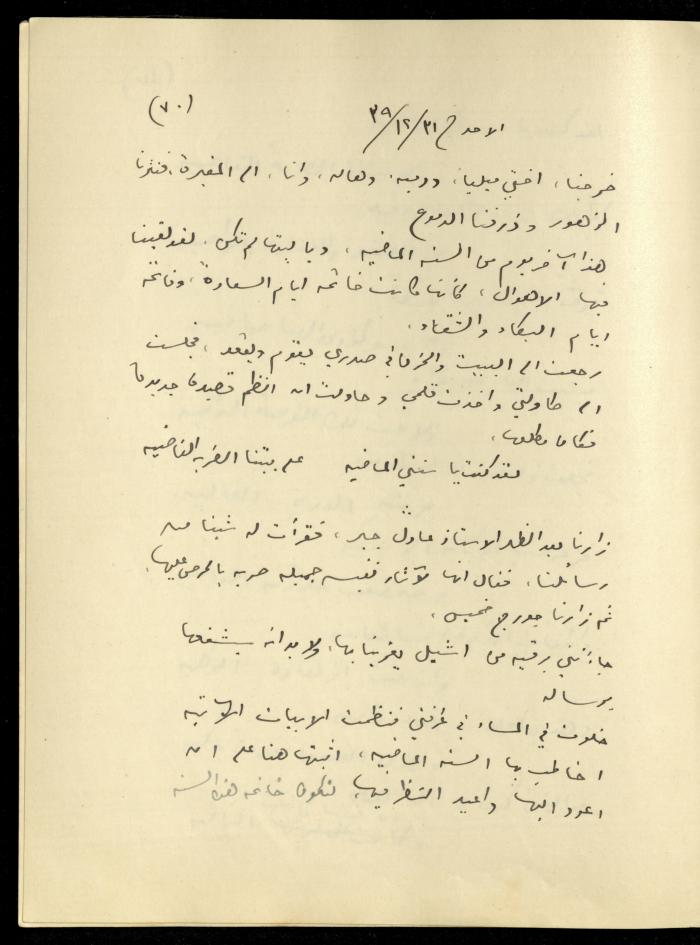 (٧٠)
الاحد في ٣٩/١٢/٣١
خرجنا، اختي ميليا، ودميه، وهاله، وانا، الى المقبرة، فنثرنا
الزهور وذرفنا الدموع
هذا آخر يوم من السنه الماضيه، ويا ليتها لم تكن. لقد لقينا
فيها الاهوال، كأنما كانت خاتمة ايام السعادة، وفاتحة
ايام البكاء والشقاء.
رجعت الى البيت والحزن في صدري يقوم ويقعد، فجلست
الى طاولتي واخذت قلمي وحاولت ان انظم قصيدة جديدة
فكان مطلعها،
لقد كنت يا سنتي الماضيه على بيتنا الضربه القاضيه
زارنا بعد الظهر الاستاذ عادل جبر، فقرأت له شيئا من
رسائلنا، فقال انها لآثار نفيسه جميله حريه بالحرص عليها.
ثم زارنا جورج خميس.
جاءتني برقيه من اشيل يعزينا بها، ولا بد انه سيشفعها
برساله
خلوت في المساء في غرفتي فنظمت الابيات الآتيه
اخاطب بها السنه الماضيه، اثبتها هنا على ان
اعود اليها واعيد النظر فيها، لتكون خاتمة هذه السنه